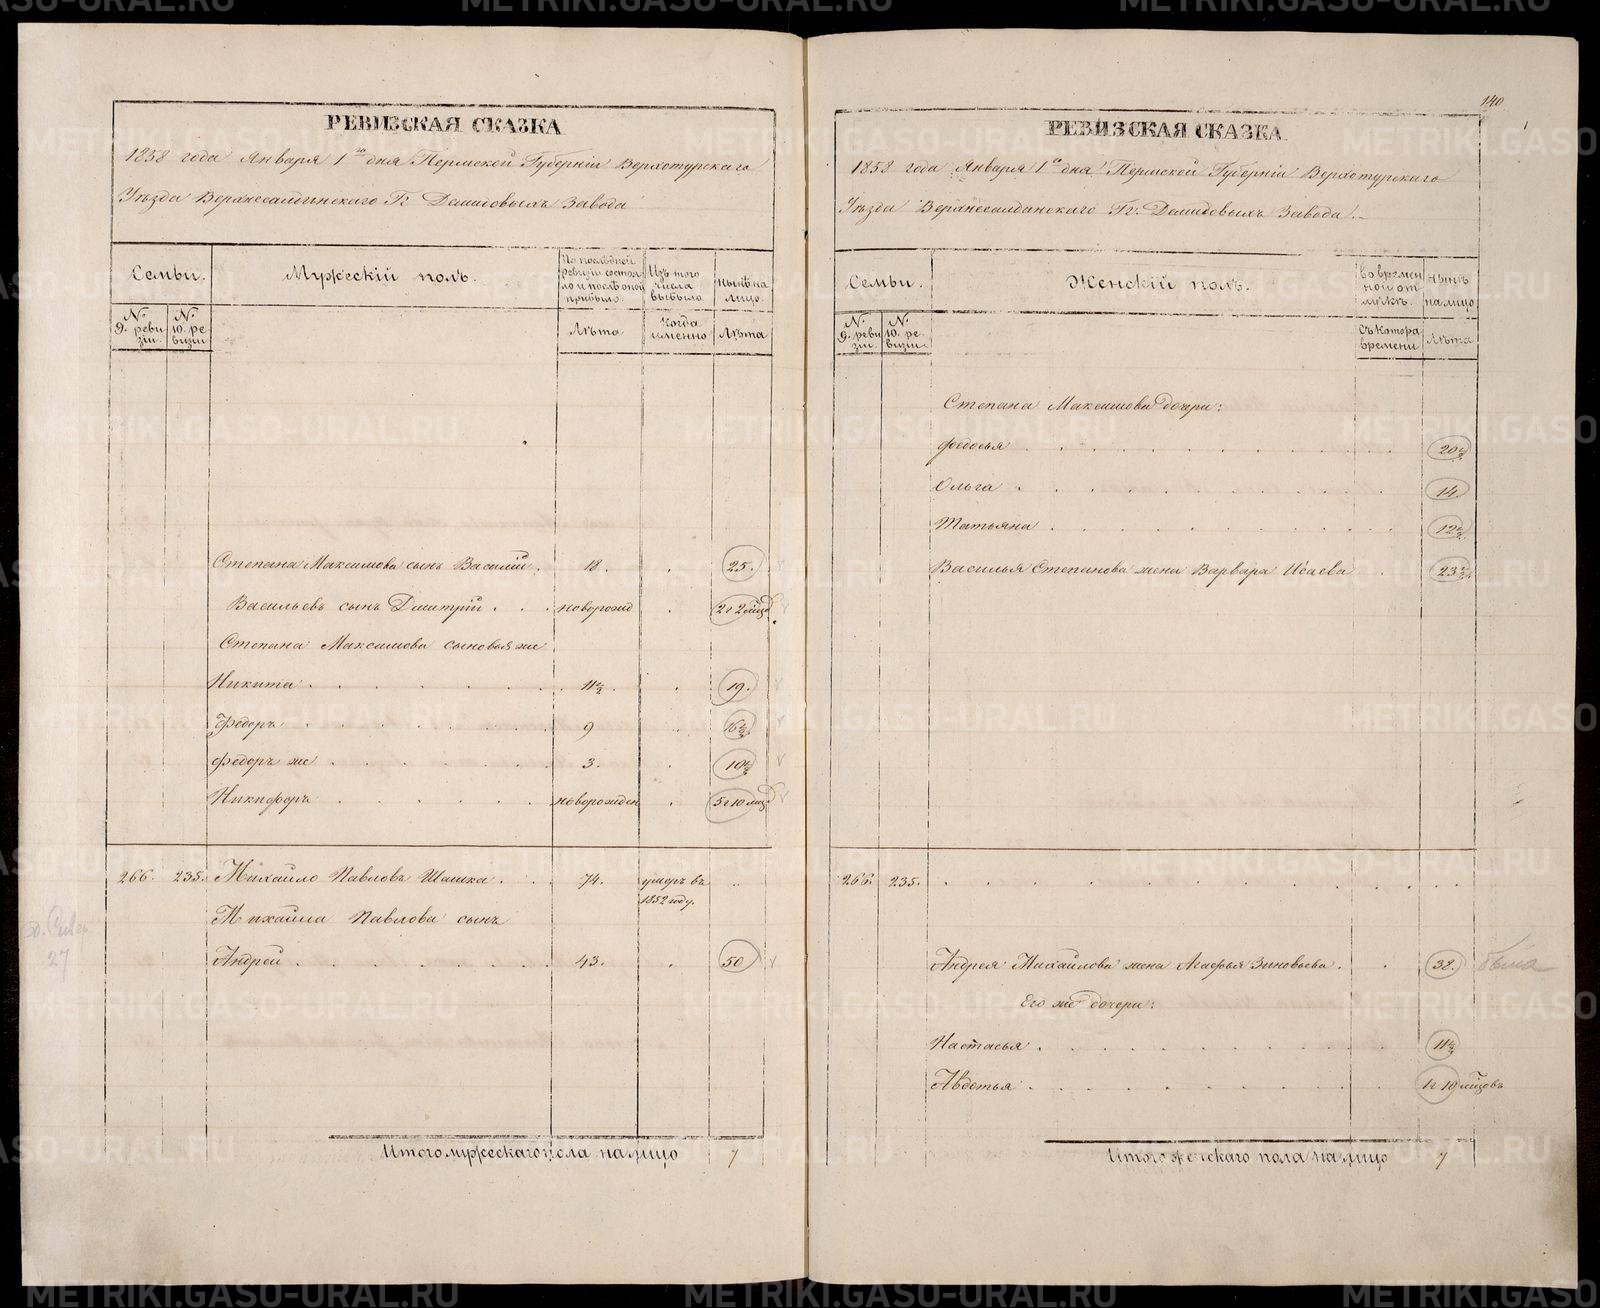 РЕВИЗСКАЯ СКАЗКА
1858 года Января 1го дня Пермской Губерніи Верхотурскаго
Уѣзда Верхнесалдинскаго Гг. Демидовыхъ Завода
Семьи.
Мужескій полъ.
По послѣдней ревизіи состояло и послѣ оной прибыло.
Изъ того числа выбыло
Нынѣ на лицо
№ 9. ревизіи.
№ 10. ревизіи
Лѣта
Когда именно
Лѣта
Степана Максимова сынъ Василій . 18. . 25.
Васильевъ сынъ Дмитрій . . . новорожд . 2 г 2 мѣцо
Степана Максимова сыновья же
Никита . 11½ . 19.
Федоръ . 9 . 16½
Федоръ же . 3. . 10½
Никифоръ . новорожден . 5 г 10 мѣцо
266. 235. Михайло Павловъ Шашка . . . 74. умеръ въ 1852 году. ..
Михайла Павлова сынъ
Андрей . 43. . 50
27
Итого мужескаго пола на лицо 7
140
РЕВИЗСКАЯ СКАЗКА
1858 года Января 1го дня Пермской Губерніи Верхотурскаго
Уѣзда Верхнесалдинскаго Гг. Демидовыхъ Завода.
Семьи.
Женскій полъ.
Во временной отлучкѣ.
Нынѣ на лицо
№ 9. ревизіи.
№ 10. ревизіи.
Съ котора времени
Лѣта
Степана Максимова дочери:
Федосья . 20½
Ольга . 14.
Татьяна . 12½
Василья Степанова жена Варвара Исаева . 23½
266. 235.
Андрея Михайлова жена Агафья Зиновьева . . 38.
Его же дочери:
Настасья . 11½
Авдотья . 1 г 10 мѣцовъ
Итого женскаго пола на лицо 7
METRIKI.GASO-URAL.RU